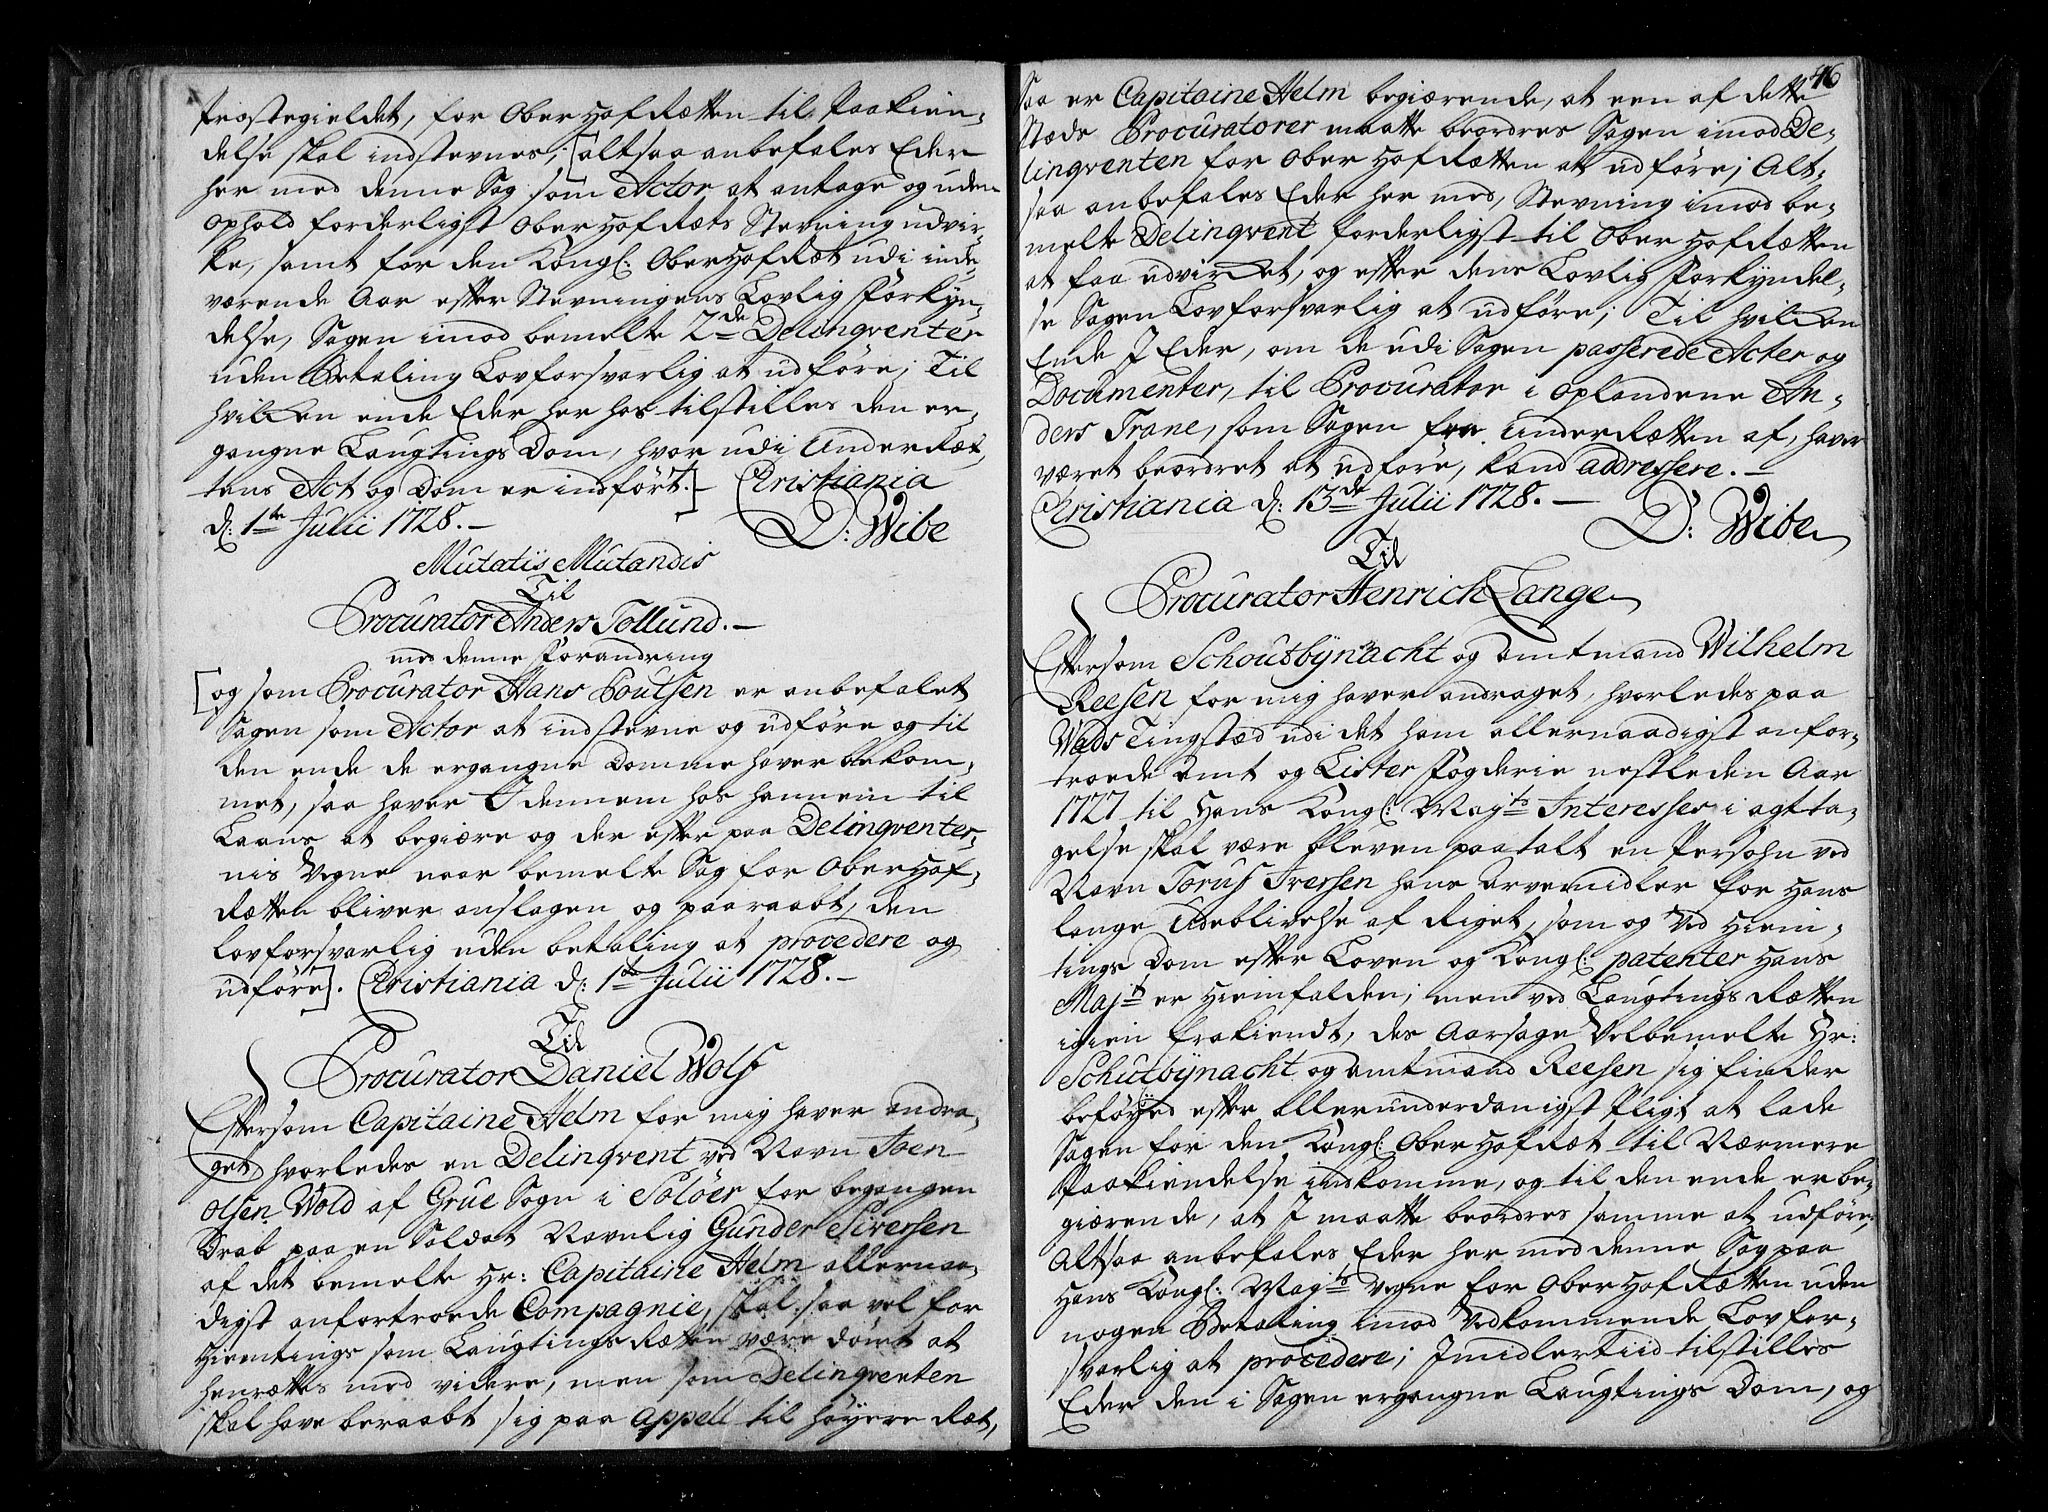 Prestegieldet, for OberHofRetten til Paakien-
delse skal indstevnes; [altsaa anbefales Eder
her med denne Sag som Actor at antage og uden
ophold forderligst OberHofRets Stevning udvir-
ke, samt for den Kongl: OberHofRet udi inde-
værende Aar efter Stevningens Lovlig Forkyn-
delse, Sagen imod bemelte 2de Delinqventer
uden Betaling Lovforsvarlig at udføre; Til
hvilken ende Eder her hos tilstilles den er-
gangne Laugtings Dom, hvor udi UnderRet-
tens Act og Dom er indført.] Christiania
d: 1te Julii 1728.
D: Wibe
Mutatis Mutandis
Til
Procurator Anders Tollund.
med denne Forandring
[og som Procurator Hans Poulsen er anbefalet
Sagen som Actor at indstevne og udføre og til
den ende de ergangne Domme haver bekom-
met, saa haver I dennem hos hannem til
Laans at begiære og der efter paa Delinqventer-
nis Vegne naar bemelte Sag for OberHof-
Retten bliver anslagen og paaraabt, den
lovforsvarlig uden betaling at procedere og
udføre]. Christiania d: 1te Julii 1728.
Til
Procurator Daniel Wolf
Eftersom Capitaine Helm for mig haver andra-
get hvorledes en Delinqvent ved Navn Joen
Olsen Wold af Grue Sogn i Soløer for begangen
Drab paa en Soldat Navnlig Gunder Siversen
af det bemelte Hr: Capitaine Helm allernaa-
digst anfortroede Compagnie, skal saa vel for
Hiemtings som Laugtings Retten være dømt at
henrettes med videre, men som Delinqventen
skal have beraabt sig paa appell til høyere Ret,
46
Saa er Capitaine Helm begiærende, at een af dette
Steds Procuratorer maatte beordres Sagen imod De-
linqventen for OberHofRetten at udføre; Alt-
saa anbefales Eder her med, Stevning imod be-
melte Delinqvent forderligst til OberHofRetten
at faa udvirket, og efter dens Lovlig Forkyndel-
se Sagen Lovforsvarlig at udføre; Til hvilken
Ende I Eder, om de udi Sagen passerede Acter og
Documenter, til Procurator i Oplandene An-
ders Trane, som Sagen fra UnderRetten af, haver
været beordret at udføre, kand addressere.
Christiania d: 13de Julii 1728.
D: Wibe
Til
Procurator Henrich Lange
Eftersom Schoutbynacht og Amtmand Wilhelm
Reesen for mig haver andraget, hvorledes paa
Wads Tingsted udi det ham allernaadigst anfor-
troede Amt og Lister Fogderie nestleden Aar
1727 til Hans Kongl: Majts Interesser i agtta-
gelse skal være bleven paatalt en Persohn ved
Navn Toruf Iversen hans arvemidler for hans
lange Udeblivelse af Riget, som og ved Hiem-
tings Dom efter Loven og Kongl: patenter Hans
Majts er hiemfalden; men ved Laugtings Retten
igien frakiendt, des Aarsage Velbemelte Hr:
Schutbynacht og Amtmand Reesen sig finder
beføyed efter Allerunderdanigst Pligt at lade
Sagen for den Kongl: OberHofRet til Nærmere
Paakiendelse indkomme, og til den ende er be-
giærende, at I maatte beordres samme at udføre,
Altsaa anbefales Eder her med denne Sag paa
Hans Kongl: Majts Vegne for OberHofRetten uden
nogen Betaling imod Vedkommende Lovfor-
svarlig at procedere; Imidlertiid tilstilles
Eder den i Sagen ergangne Laugtings Dom, og